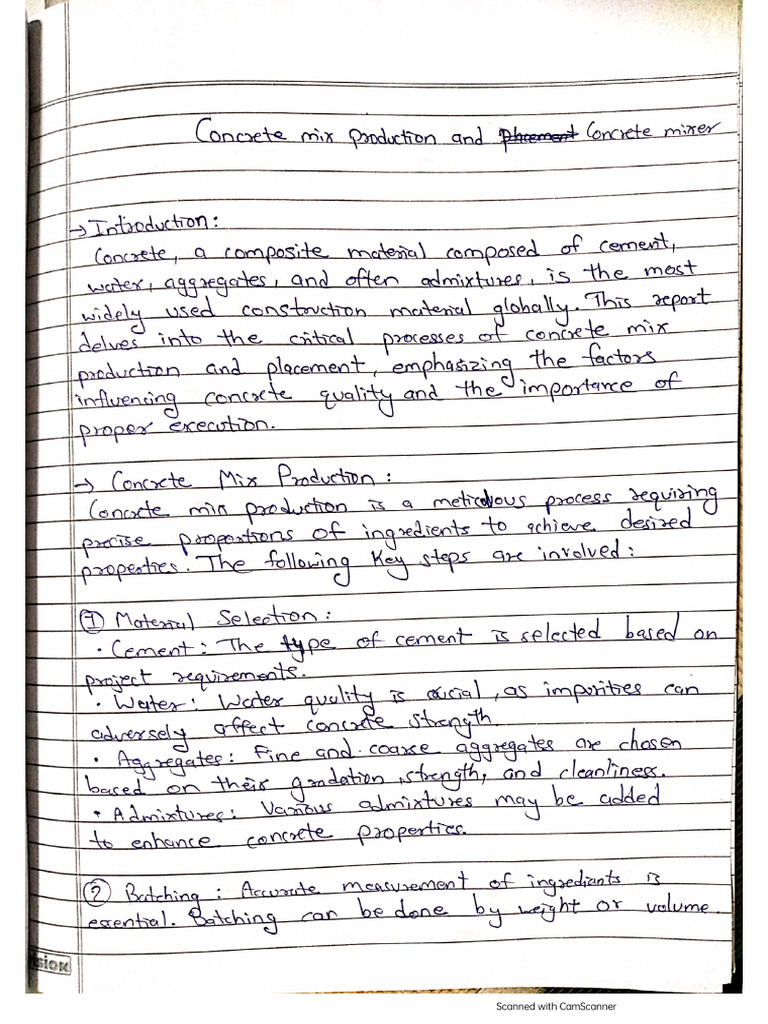 Concrete mix production and placement Concrete mixer
→ Introduction:
Concrete, a composite material composed of cement,
water, aggregates, and often admixtures, is the most
widely used construction material globally. This report
delves into the critical processes of concrete mix
production and placement, emphasizing the factors
influencing concrete quality and the importance of
proper execution.
→ Concrete Mix Production:
Concrete mix production is a meticulous process requiring
precise proportions of ingredients to achieve desired
properties. The following Key steps are involved:
① Material Selection:
• Cement: The type of cement is selected based on
project requirements.
• Water: Water quality is crucial, as impurities can
adversely affect concrete strength.
• Aggregates: Fine and coarse aggregates are chosen
based on their gradation, strength, and cleanliness.
• Admixtures: Various admixtures may be added
to enhance concrete properties.
② Batching: Accurate measurement of ingrediants is
essential. Batching can be done by weight or volume.
sion
Scanned with CamScanner